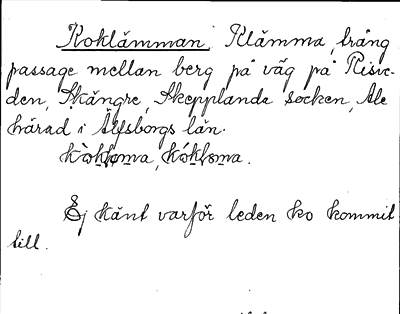 Koklämman Klämma, trång
passage mellan berg på väg på Risve-
den, Skångre, Skepplanda socken, Ale
härad i Älfsborgs län.
Ej känt varför leden ko kommit
till.